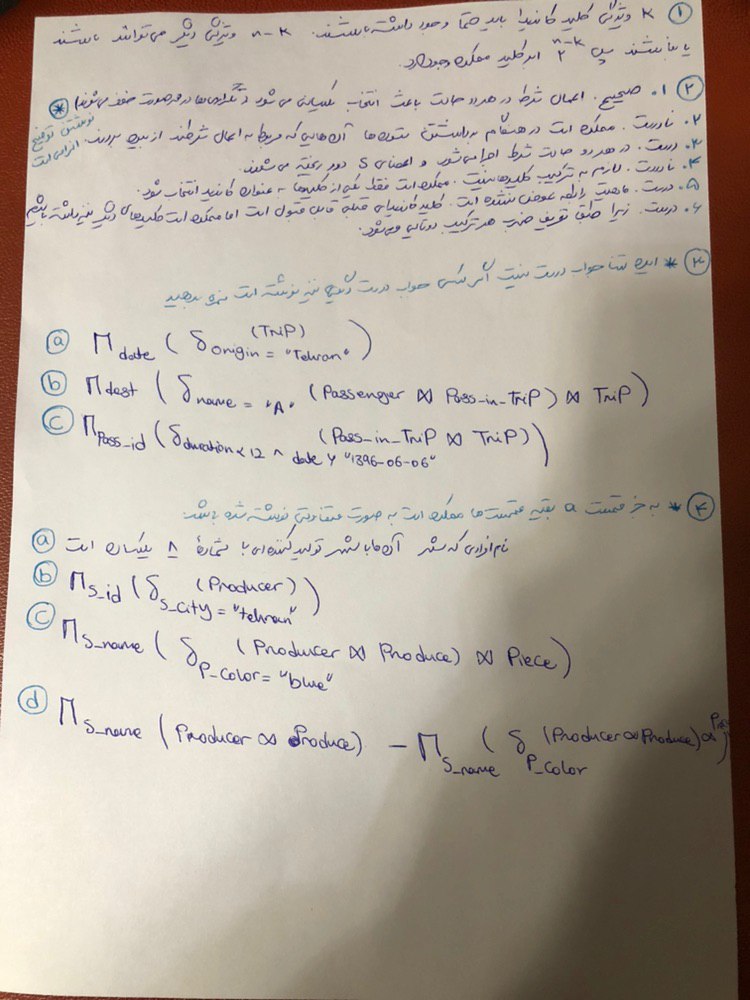 ① k ویژگی کلید کاندیدا باید حتما وجود داشته باشند. n-k ویژگی دیگر می‌توانند باشند
یا نباشند پس 2^(n-k) ابرکلید ممکن وجود دارد.
② ۱. صحیح. اعمال شرط در هر دو حالت باعث انتخاب یکسانی می‌شود (تکراری‌ها در هر صورت حذف می‌شوند) *
نوشتن توضیح
الزامی است
۲. نادرست. ممکن است در هنگام برداشتن ستون‌ها آن‌هایی که مربوط به اعمال شرطند از بین بروند.
۳. درست. در هر دو حالت شرط اجرا می‌شود و اعضای S دور ریخته می‌شوند.
۴. نادرست. لازم به ترکیب کلیدها نیست. ممکن است فقط یکی از کلیدها به عنوان کاندید انتخاب شود.
۵. درست. ماهیت رابطه عوض نشده است. کلید کاندیدای قبلی قابل قبول است اما ممکن است کلیدهای دیگر نیز داشته باشیم
۶. درست. زیرا طبق تعریف ضرب هر ترکیب دوتایی
③ * تنها جواب درست نیست اگر کسی جواب درست دیگری نیز نوشته است نمره بدهید
ⓐ Π date ( δ origin = "Tehran" (TriP) )
ⓑ Π dest ( δ name = "A" (Passenger ⋈ Pass_in_TriP) ⋈ TriP )
ⓒ Π Pass_id ( δ duration < 12 ∧ date > "1396-06-06" (Pass_in_TriP ⋈ TriP) )
④ * به جز قسمت a بقیه قسمت‌ها ممکن است به صورت متفاوتی نوشته شده باشد.
ⓐ نام افرادی که شهر آن‌ها با شهر تولید کننده‌ای با شماره ۸ یکسان است
ⓑ Π S_id ( δ S_city = "tehran" (Producer) )
ⓒ Π S_name ( δ P_color = "blue" (Producer ⋈ Produce) ⋈ Piece )
ⓓ Π S_name (Producer ∞ Produce) − Π S_name ( δ P_color (Producer ∞ Produce) ∞